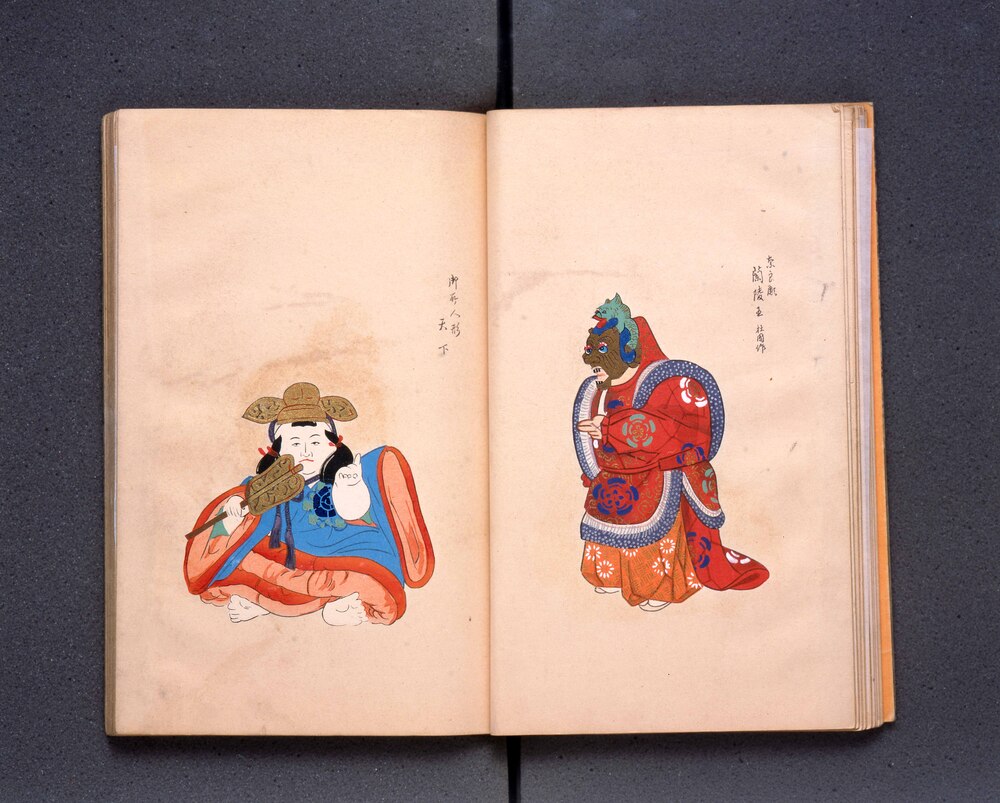 奈良彫
蘭陵王 杜園作
御所人形
天下